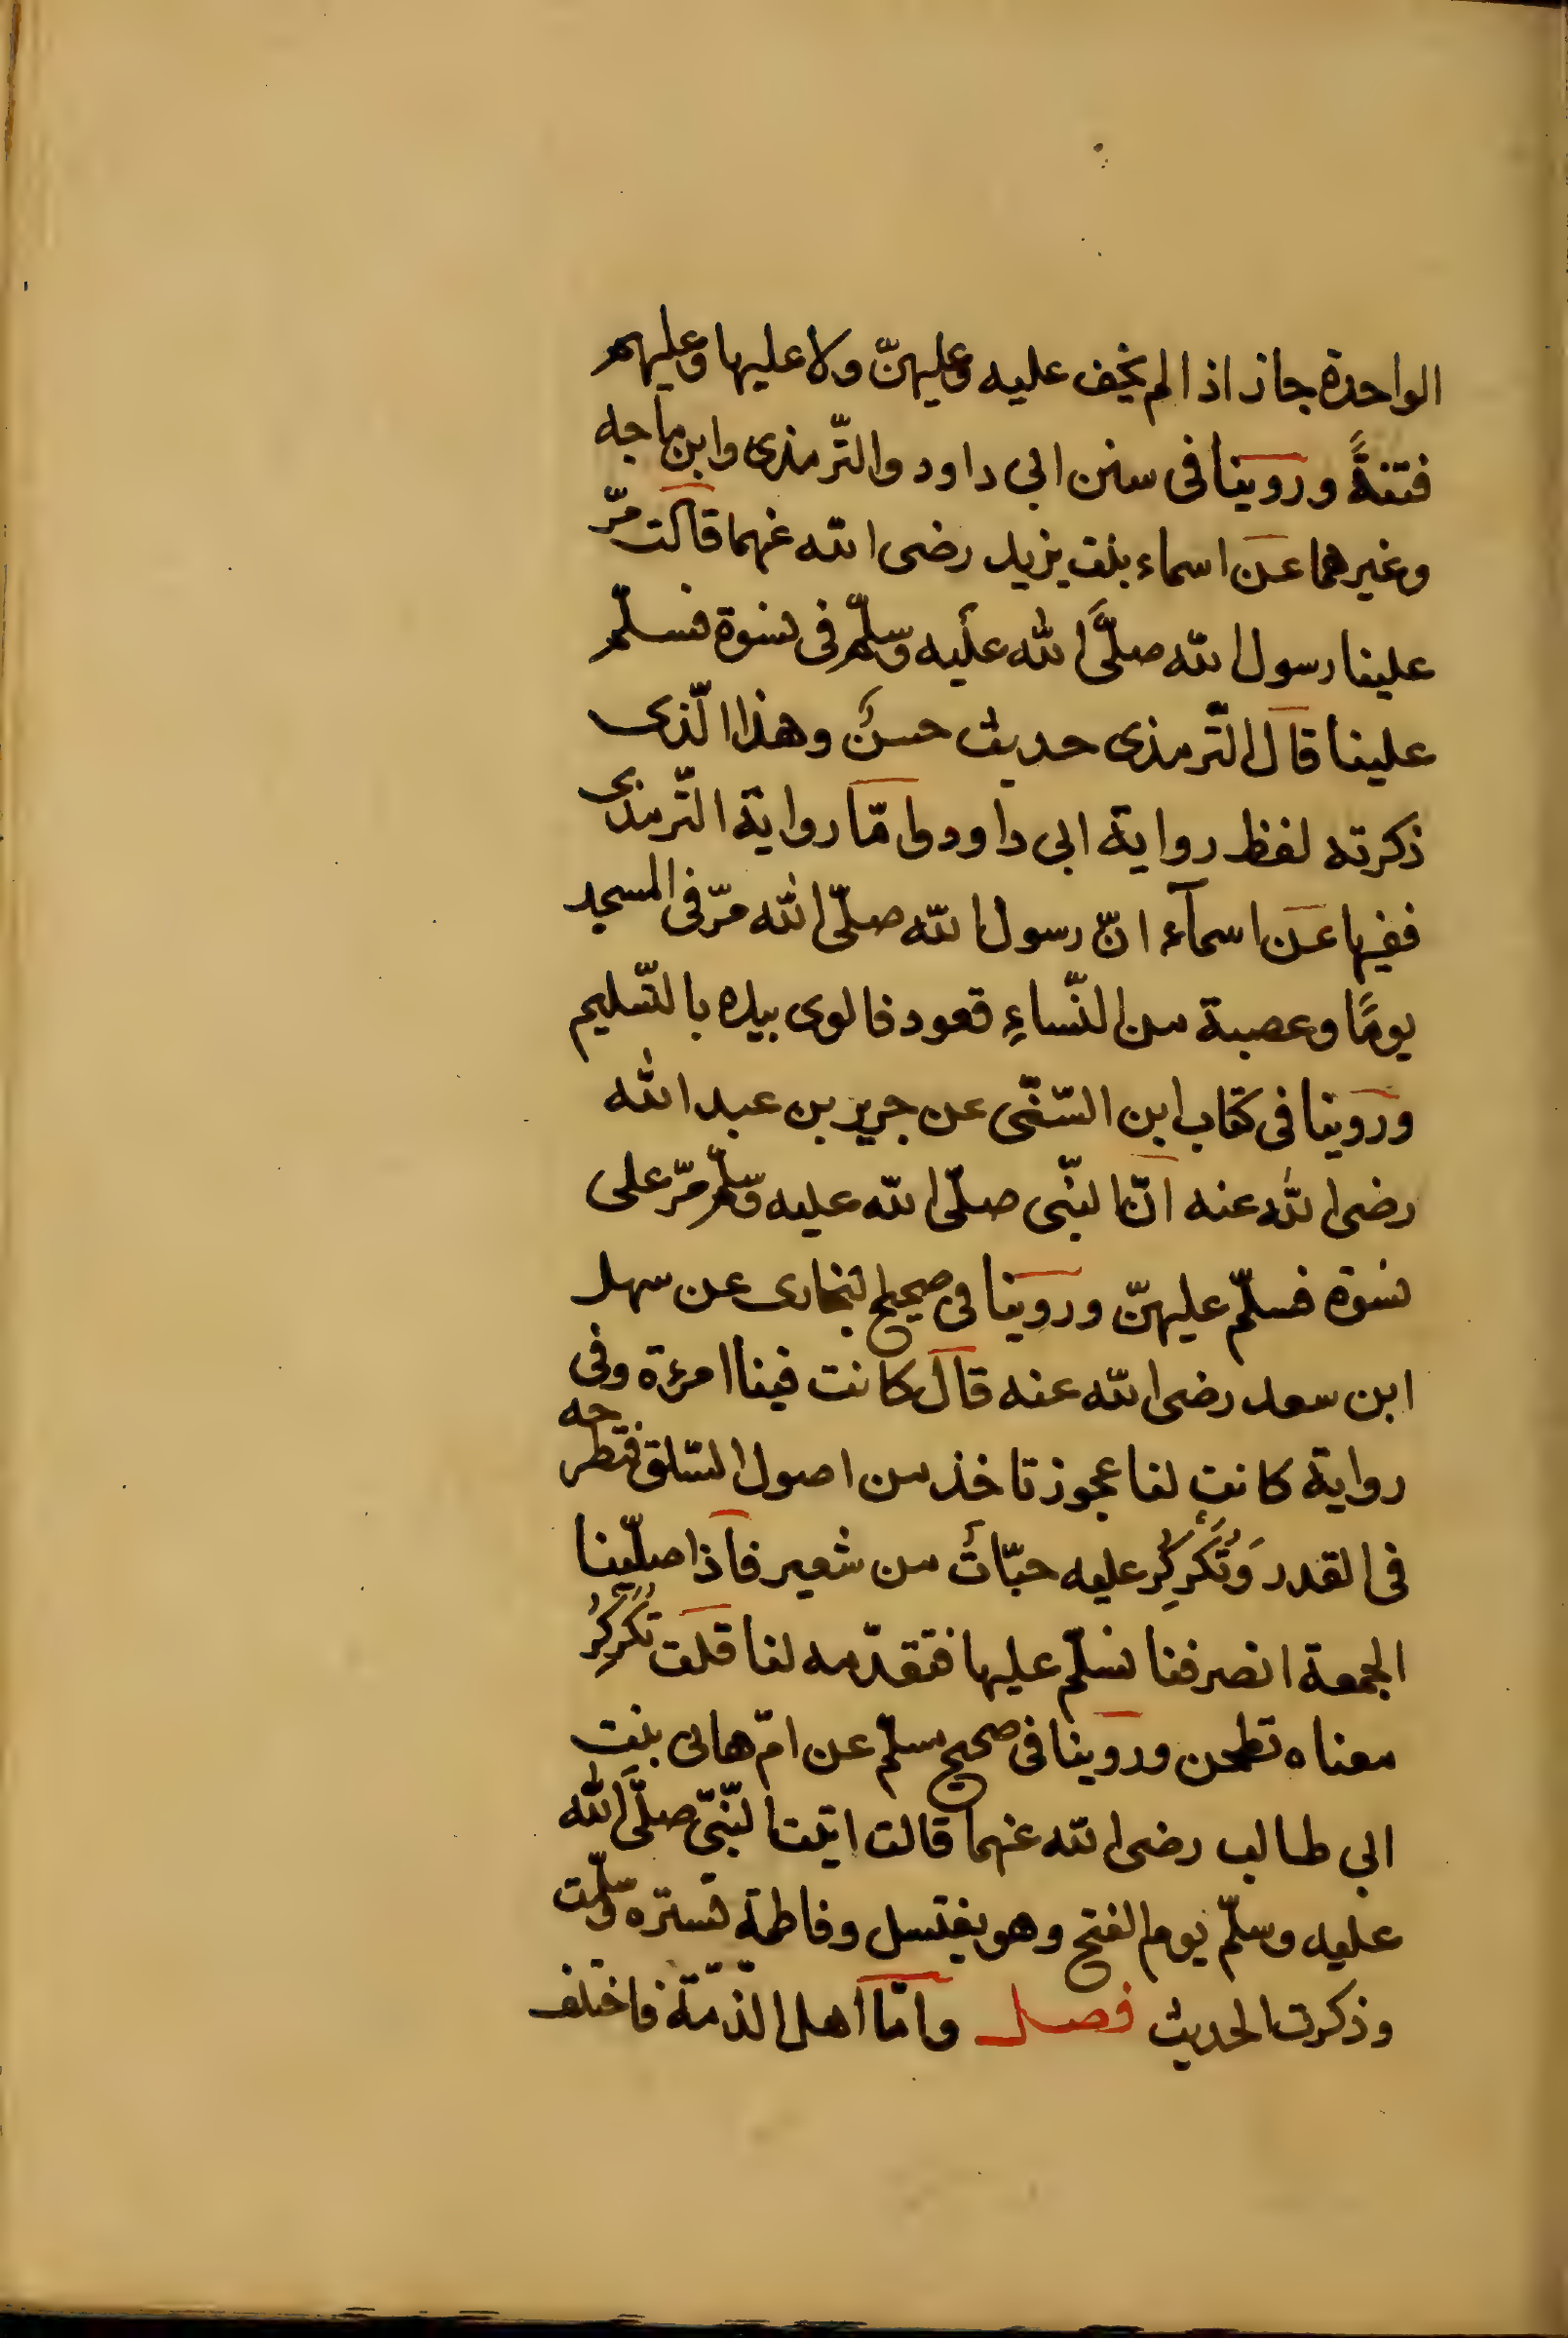 الواحدة جاز اذا لم يخف عليه وعليهنّ ولا عليها وعليهم
فتنةً وروينا فى سنن ابى داود والتّرمذى وابن ماجه
وغيرهما عن اسماء بنت يزيد رضى الله عنهما قالت مرّ
علينا رسول الله صلَّى الله عليه وسلّم فى نسوة فسلّم
علينا قال التّرمذى حديث حسنٌ وهذا الّذى
ذكرته لفظ رواية ابى داود وامّا رواية التّرمذى
ففيها عن اسمآء انّ رسول الله صلّى الله مرّ فى المسجد
يومًا وعصبة من النّساءِ قعود فالوى بيده بالتّسليم
وروينا فى كتاب ابن السّنّى عن جرير بن عبد الله
رضى الله عنه انّ النّبى صلّى الله عليه وسلّم مرّ على
نسوة فسلّم عليهنّ وروينا فى صحيح البخارى عن سهل
ابن سعد رضى الله عنه قال كانت فينا امرءة وفى
رواية كانت لنا عجوز تاخذ من اصول السّلق فتطرحه
فى القدر وَتُكَركِرُ عليه حبّاتٌ من شعير فاذا صلّينا
الجمعة انصرفنا نسلّم عليها فتقدّمه لنا قلت تُكَركِرُ
معناه تطحن وروينا فى صحيح مسلم عن امّ هانى بنت
ابى طالب رضى الله عنهما قالت اتيت النّبىّ صلَّى الله
عليه وسلّم يوم الفتح وهو يغتسل وفاطمة تستره فسلّمت
وذكرت الحديث فصل وامّا اهل الذّمّة فاختلف